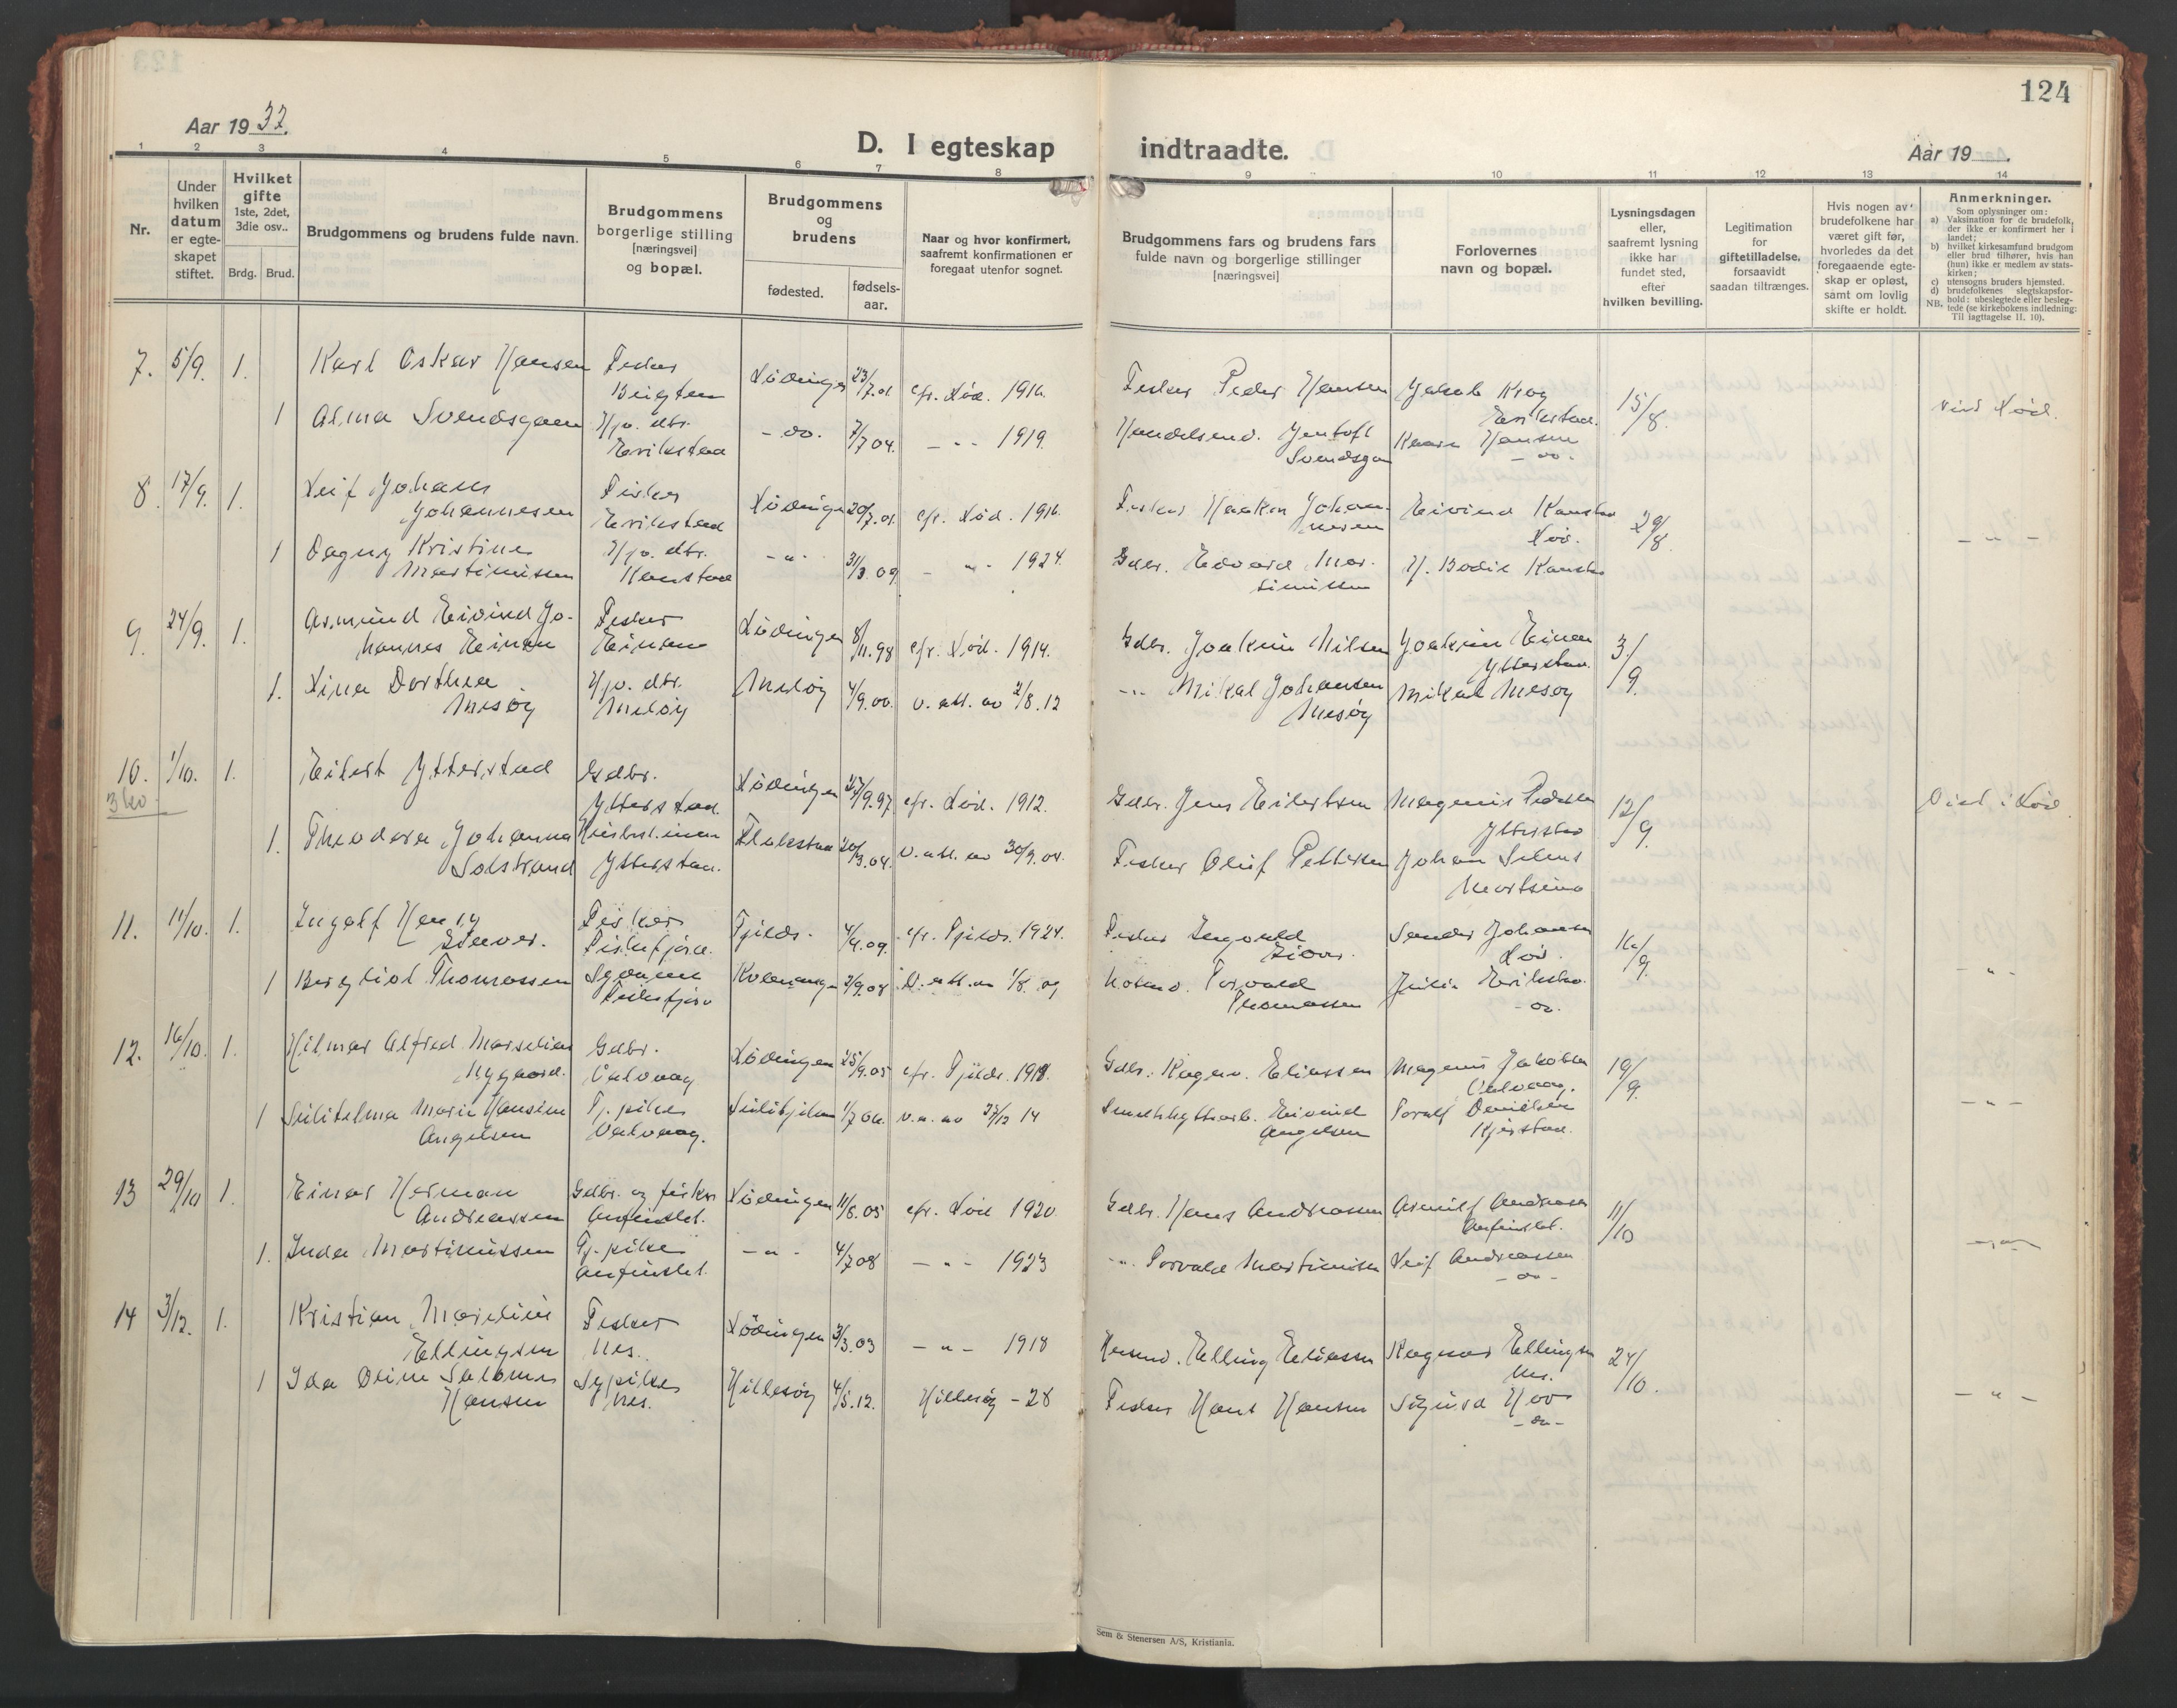 124
Aar 19 32.
D. I egteskap indtraadte.
Aar 19 .
1 2 3 4 5 6 7 8 9 10 11 12 13 14
Nr.
Under hvilken datum er egte-skapet stiftet.
Hvilket gifte 1ste, 2det, 3die osv..
Brdg. Brud.
Brudgommens og brudens fulde navn.
Brudgommens borgerlige stilling [næringsvei] og bopæl.
Brudgommens og brudens
fødested.
fødsels-aar.
Naar og hvor konfirmert, saafremt konfirmationen er foregaat utenfor sognet.
Brudgommens fars og brudens fars fulde navn og borgerlige stillinger [næringsvei]
Forlovernes navn og bopæl.
Lysningsdagen eller, saafremt lysning ikke har fundet sted, efter hvilken bevilling.
Legitimation for giftetilladelse, forsaavidt saadan tiltrænges.
Hvis nogen av brudefolkene har været gift før, hvorledes da det foregaaende egte-skap er opløst, samt om lovlig skifte er holdt.
Anmerkninger.
Som oplysninger om:
a) Vaksination for de brudefolk, der ikke er konfirmert her i landet;
b) hvilket kirkesamfund brudgom eller brud tilhører, hvis han (hun) ikke er medlem av stats-kirken;
c) utensogns bruders hjemsted.
d) brudefolkenes slegtskapsfor-hold: ubeslegtede eller besleg-tede (se kirkebokens indledning: Til iagttagelse II. 10).
NB.
7. 5/9. 1. Karl Oskar Hansen Fisker Lødingen 23/7.01 cfr. Lød. 1916. Fisker Peder Hansen Jakob Krog 15/8. viet Lød.
Erikstad.
1 Alma Svendsgaam Hjv. dtr. Erikstad - do. 7/7 04. - " - 1919. Handelsmd. Jentoft Kaare Hansen
- do -
8. 17/9. 1. Leif Johan Johannesen Fisker Erikstad Lødingen 20/7.01. cfr. Lød. 1916. Fisker Haakon Johan-nesen Eivind Kanstad Lød. 29/8. - " -
1 Dagny Kristine Martinussen Hjv. dtr. Kanstad - " - 31/3. 09 - " - 1924. Gdbr. Edvard Mar-tinussen H. Bodil Kanstad
9. 24/9. 1. Asmund Eivind Jo-hannes Einan Fisker Einan Lødingen 8/11.98 cfr. Lød. 1914. Gdbr. Joakim Nilsen Joakim Einan Ytterstad 3/9.
1. Lina Dorthea Mesøy Hjv. dtr. Meløy Meløy 4/9.00. v. att. av 2/8.12 - " - Mikal Johansen Mesøy Mikal Mesøy
10. 1/10. 1. Eilert Ytterstad Gdbr. Ytterstad. Lødingen 27/9.97. cfr. Lød. 1912. Gdbr. Jens Eilertsen Magnus Pedersen Ytterstad 12/9 Viet i Lød
1. Theodora Johanna Solstrand Ytterstad. Flakstad 20/3.04. v. att. av 30/9.04. Fisker Oluf Pettersen Johan
11. 11/10. 1. Ingolf Henry Fisker Fiskefjord. Fjelds. 4/4.09. cfr. Fjelds. 1924. Fisker Ingvald Sander Johansen Lød. 16/9. - " -
1 Bergliot Thomassen Fiskefjord Kvænangen 3/9.08 v. att. av 1/8. 09 Torvald Thomassen Julie Erikstad - do.
12. 16/10. 1. Hilmar Alfred Marselius Nygaard. Gdbr. Valvaag Lødingen 25/9.05 cfr. Fjelds. 1918. Gdbr. Ragnv. Eliassen Magnus Jakobsen Valvaag. 19/9. - " -
1 Sulitelma Marie Hansine Angelsen Tj. pike Valvaag. 1/7 06. v. a. av 27/12 14 Smeltehyttearb. Eivind Angelsen Toralf Danielsen Kjerstad.
13 29/10 1. Einar Herman Andreassen Gdbr. og fisker Anfinslet. Lødingen 11/6.05 cfr. Lød 1920. Gdbr. Hans Andreassen Arnulf Andreassen Anfinslet. 11/10 - " -
1. Inda Martinussen Tj. pike Anfinslet. - " - 4/7 08 - " - 1923 - " - Torvald Martinussen Leif Andreassen - do -
14 3/12. 1. Kristian Marelius Ellingsen Fisker Nes. Lødingen 3/3.03 - " - 1918 Elling Eliassen Ragnar Ellingsen Nes. 24/10. - " -
1 Ida Oline Salomi Hansen Sypike Nes. Hillesøy 4/5.12. Hillesøy - 28 Fisker Hans Hansen Sigurd Hov - do -
Sem & Stenersen A/S, Kristiania.